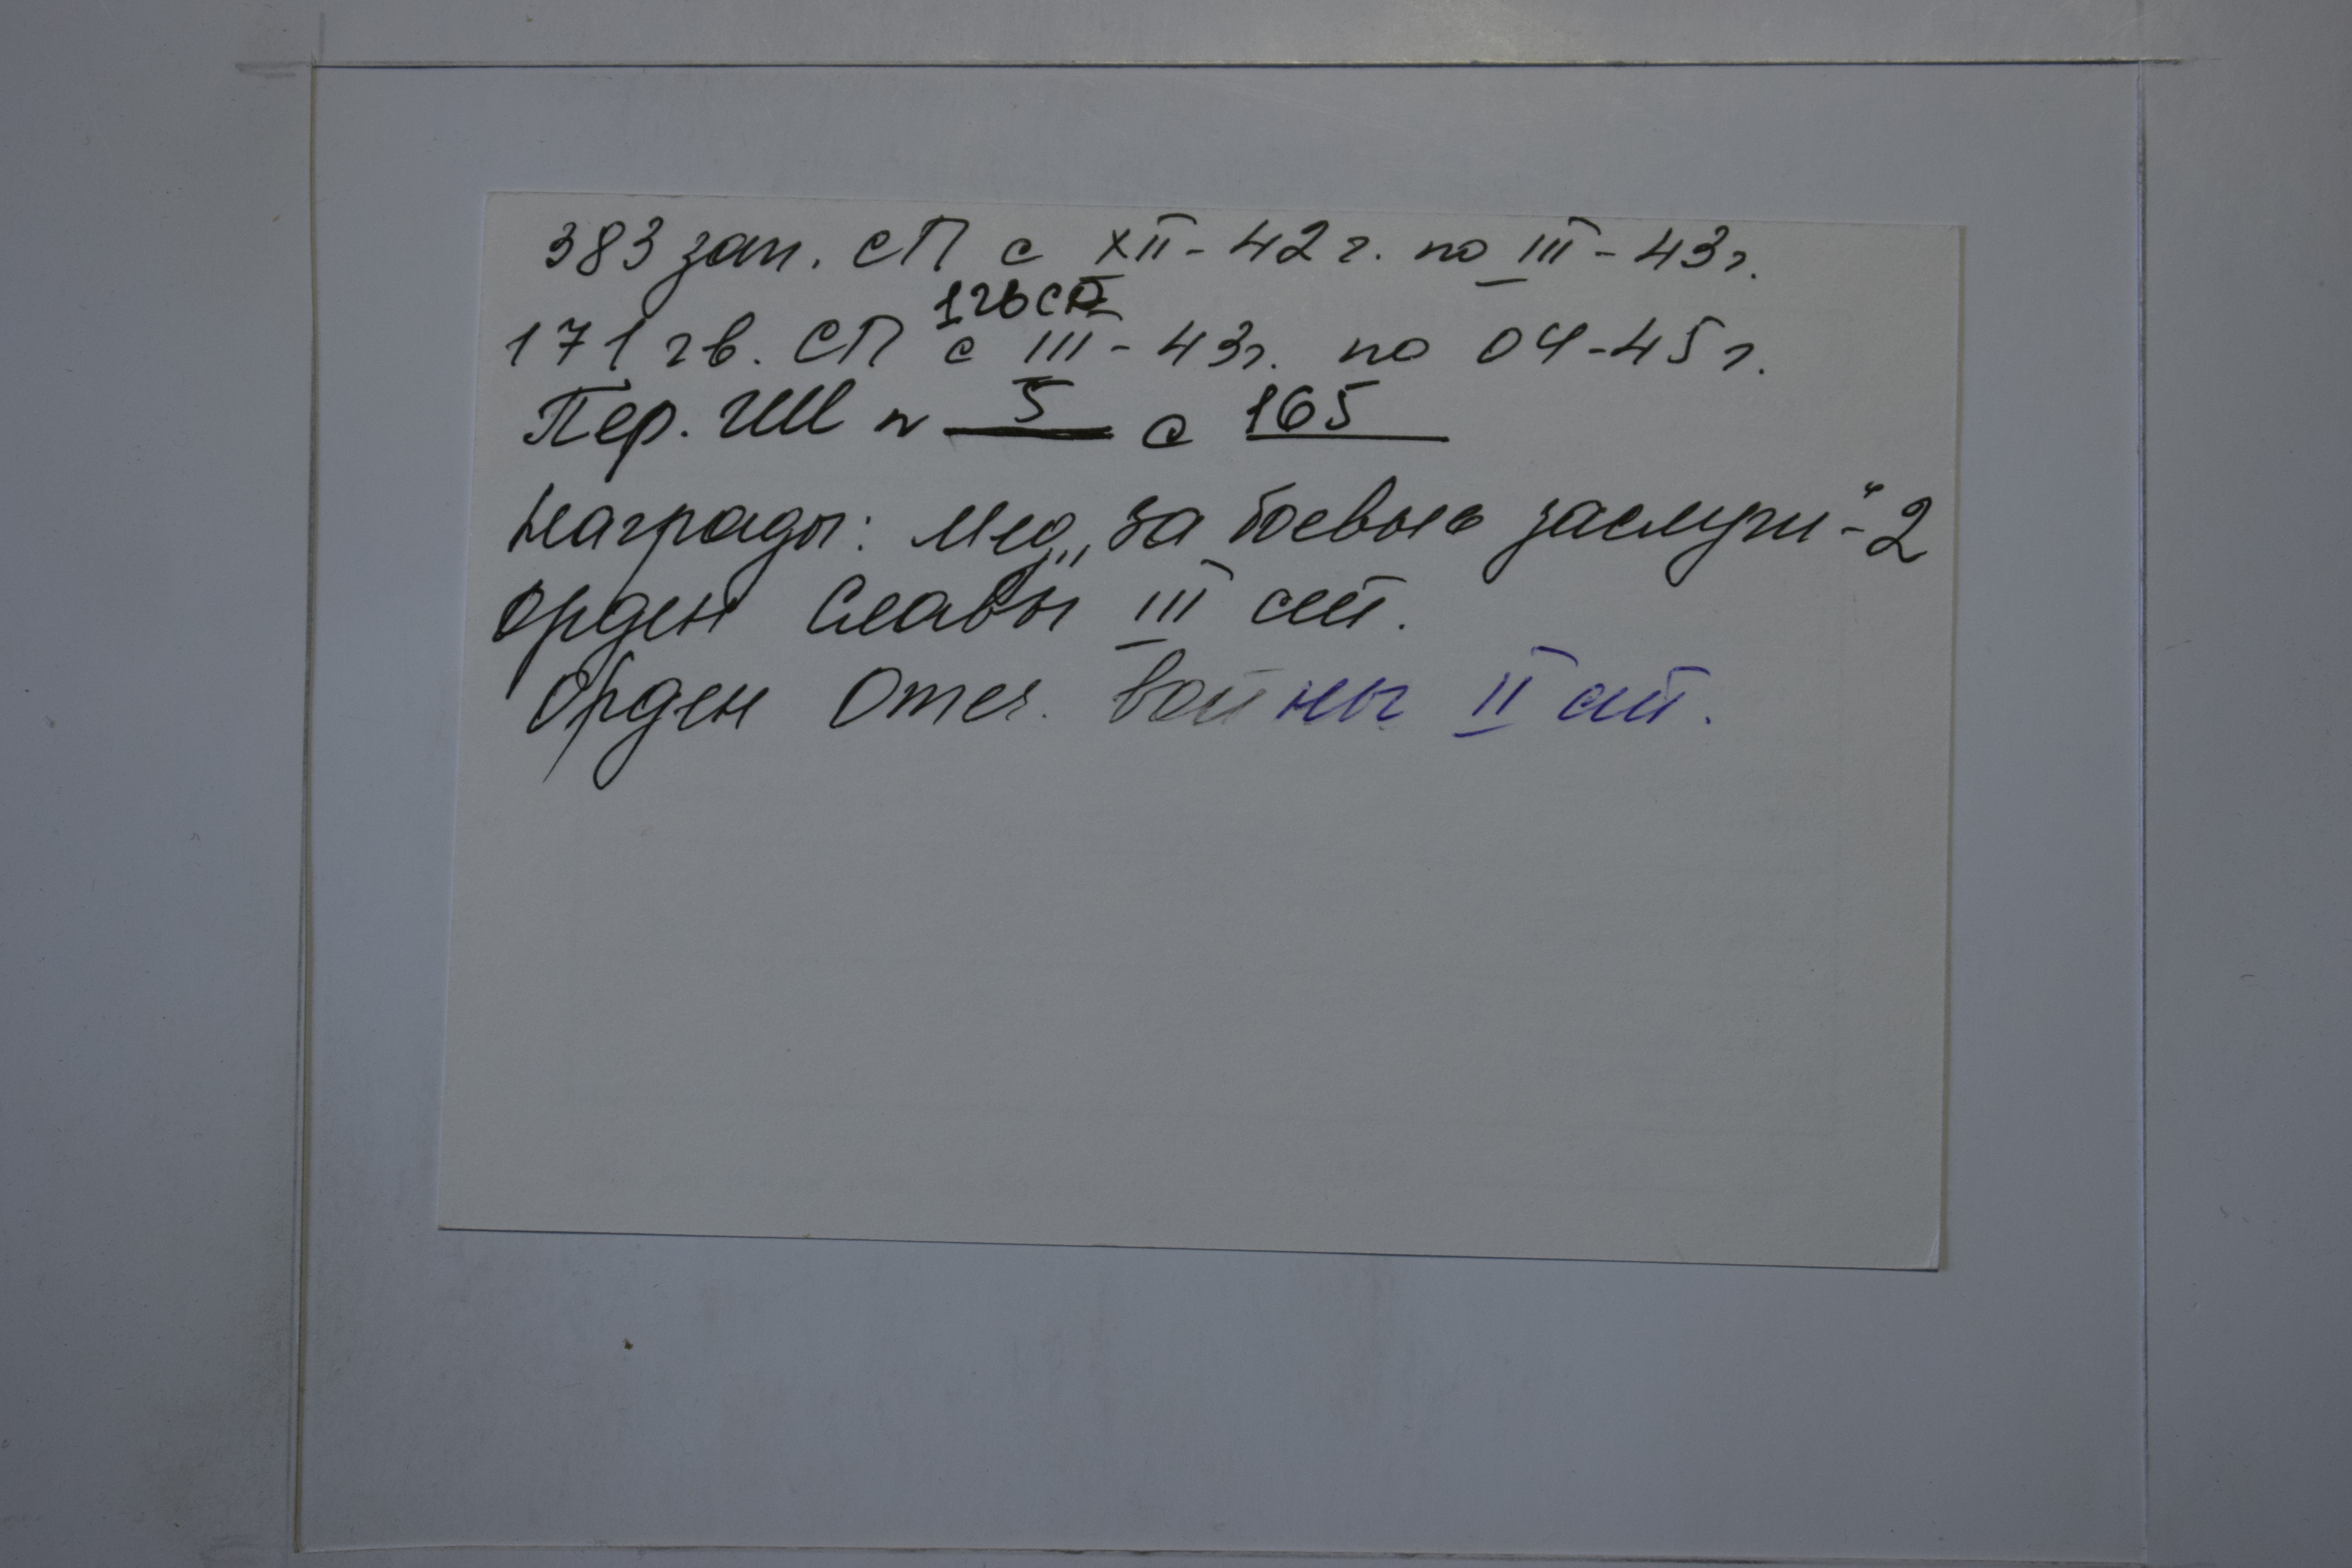 383 зап. СП с XII - 42 г. по III - 43 г.
1 гв СД
171 гв. СП с III - 43 г. по 04 - 45 г.
Пер. ГШ № 5 с 165
Награды: Мед. „За боевые заслуги“ - 2
Орден Славы III ст.
Орден Отеч. войны II ст.